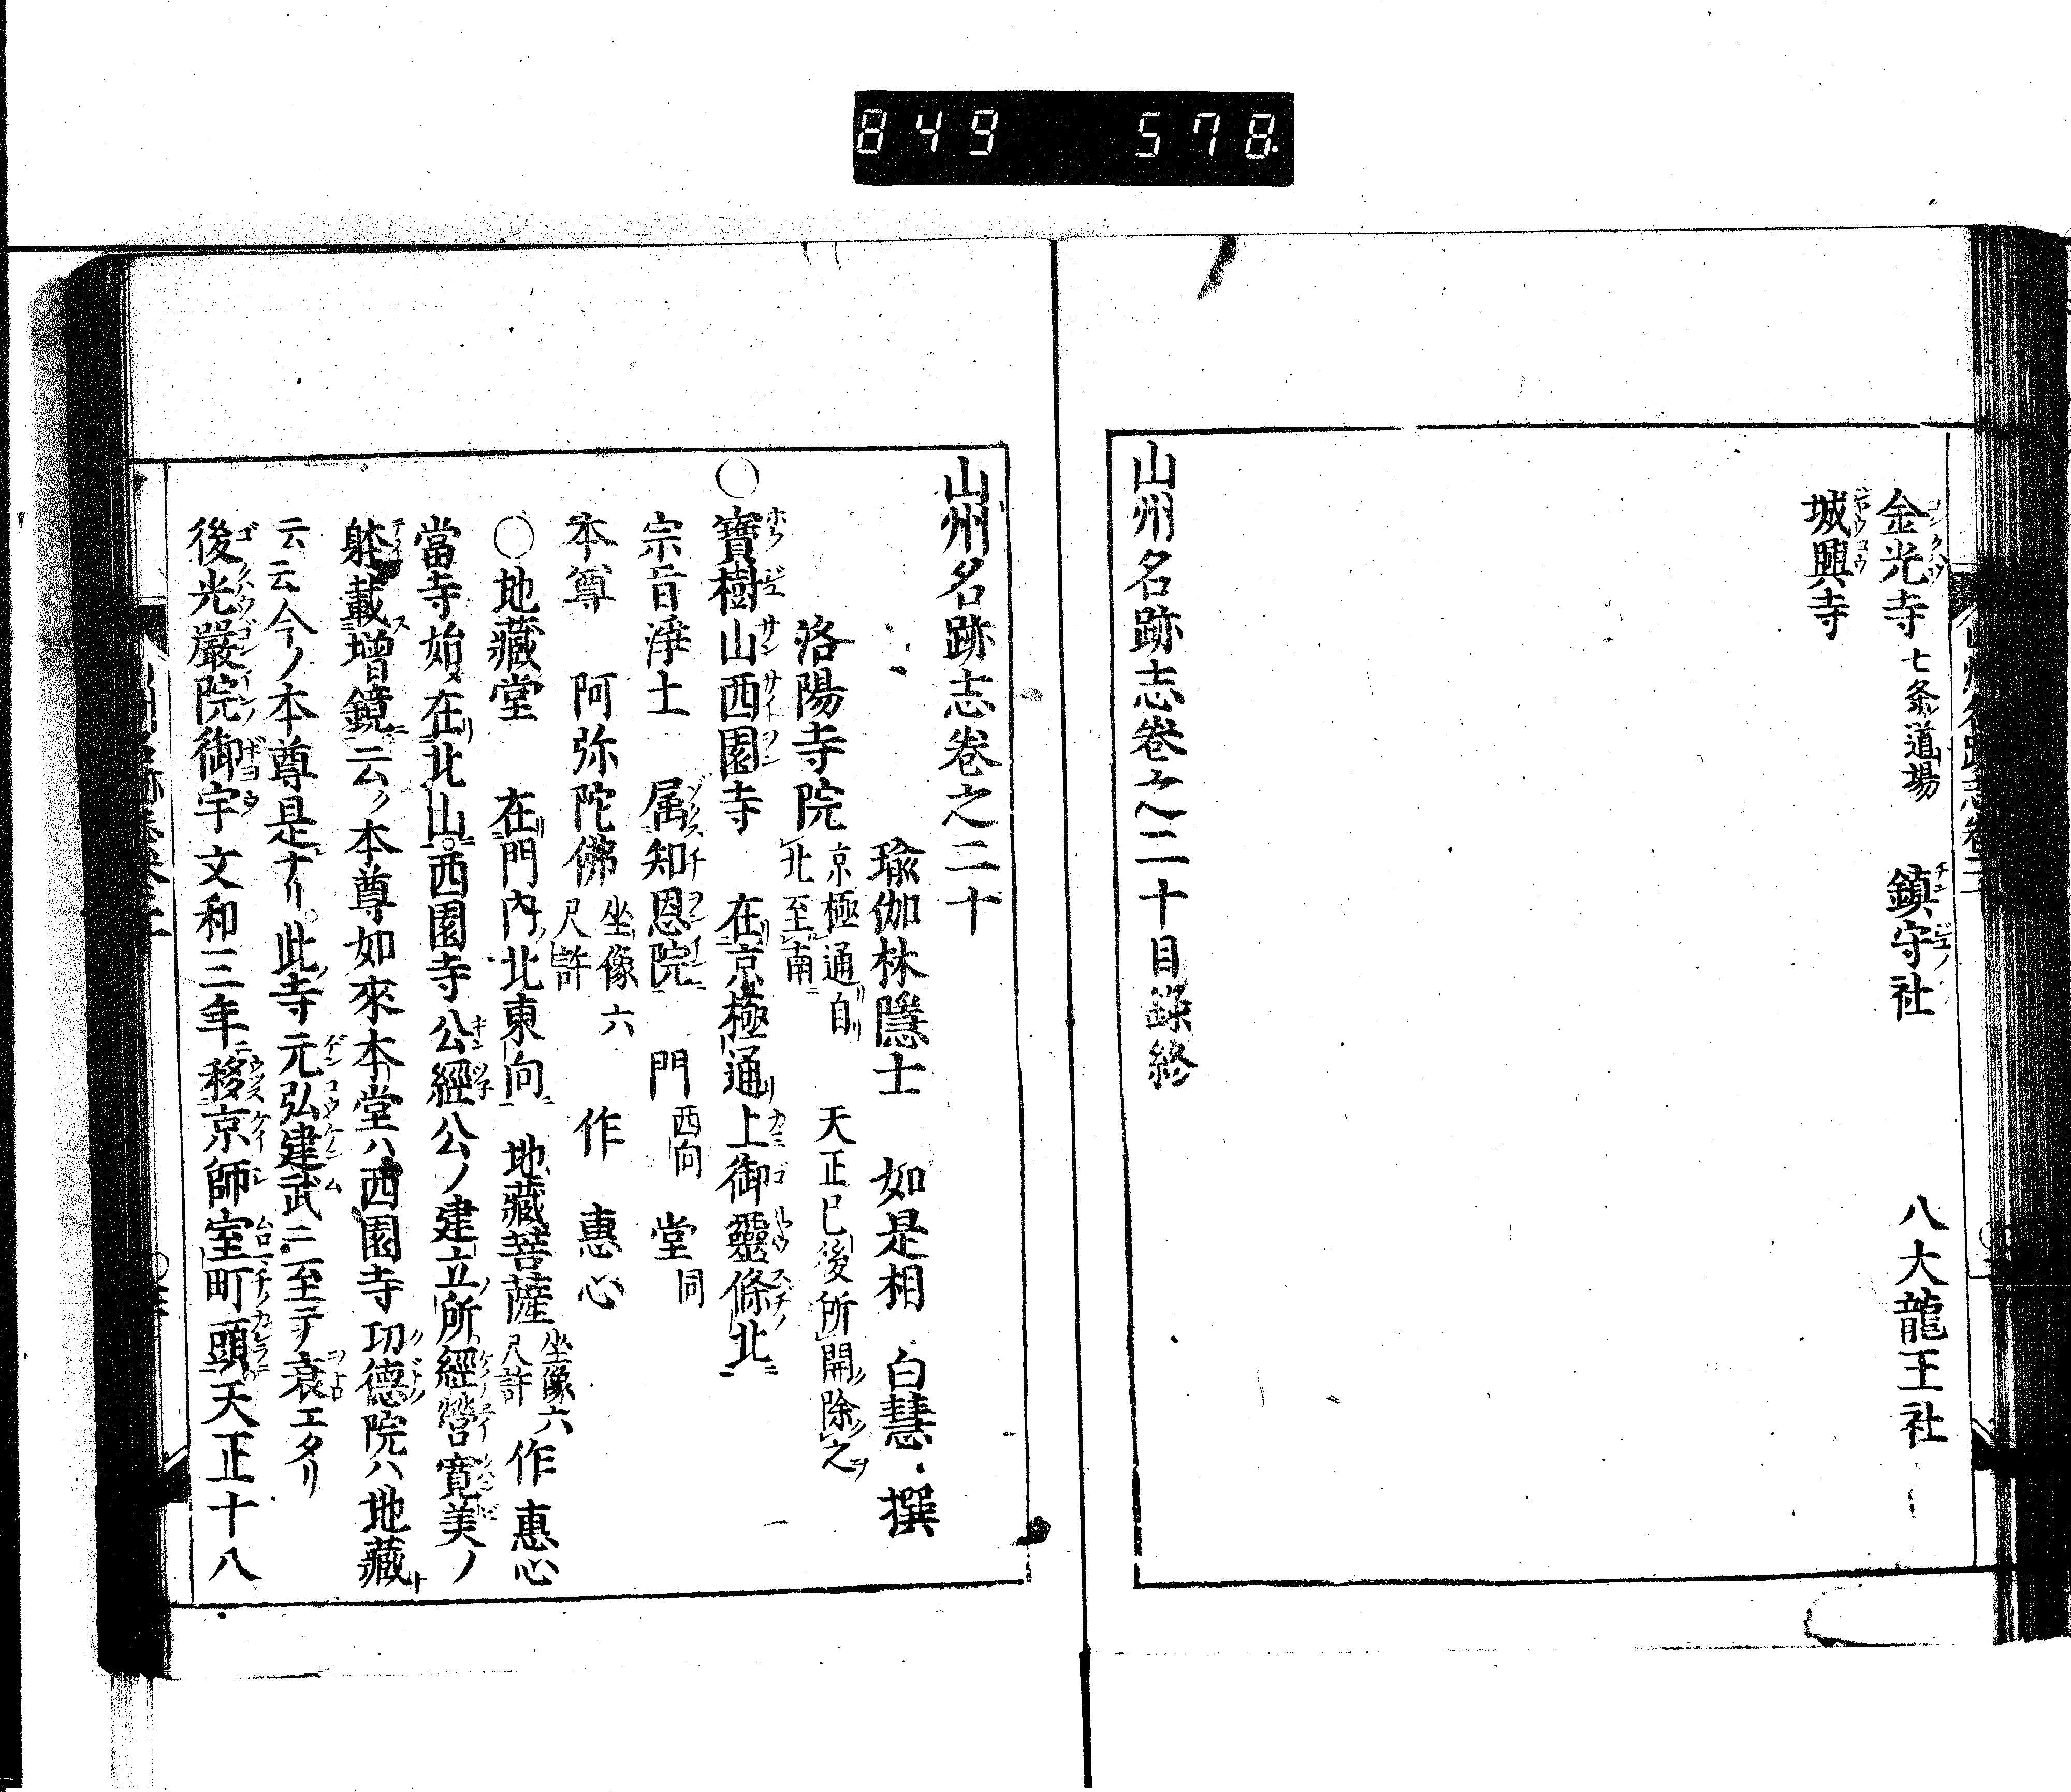 849 578
金光寺 七条道場 鎮守社 八大龍王社
城興寺
山州名跡志巻之二十目録終
山州名跡志巻之二十
瑜伽林隱士 如是相 白慧 撰
洛陽寺院 京極通自北至南 天正已後所開除之
○寶樹山西園寺 在京極通上御靈條北
宗旨淨土 属知恩院 門西向 堂同
本尊 阿弥陀佛 坐像六尺許 作 惠心
○地藏堂 在門內北東向 地藏菩薩 坐像六尺許 作惠心
當寺始メ在北山西園寺公經公ノ建立所經營寛美ノ
躰載増鏡云ク本尊如來本堂ハ西園寺功德院ハ地藏ト
云云今ノ本尊是ナリ此寺元弘建武ニ至テ衰エタリ
後光嚴院御宇文和三年移京師室町頭天正十八